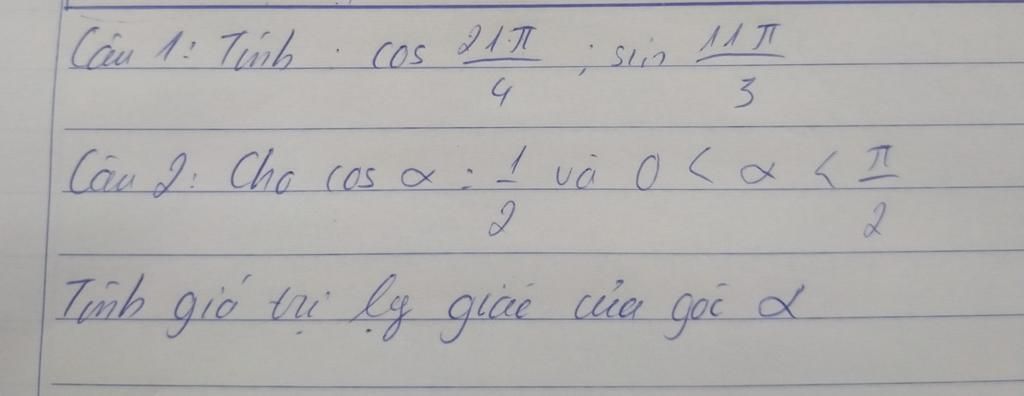 Câu 1: Tính: cos 21π/4 ; sin 11π/3
Câu 2: Cho cos α = 1/2 và 0 < α < π/2
Tính giá trị lg giác của góc α